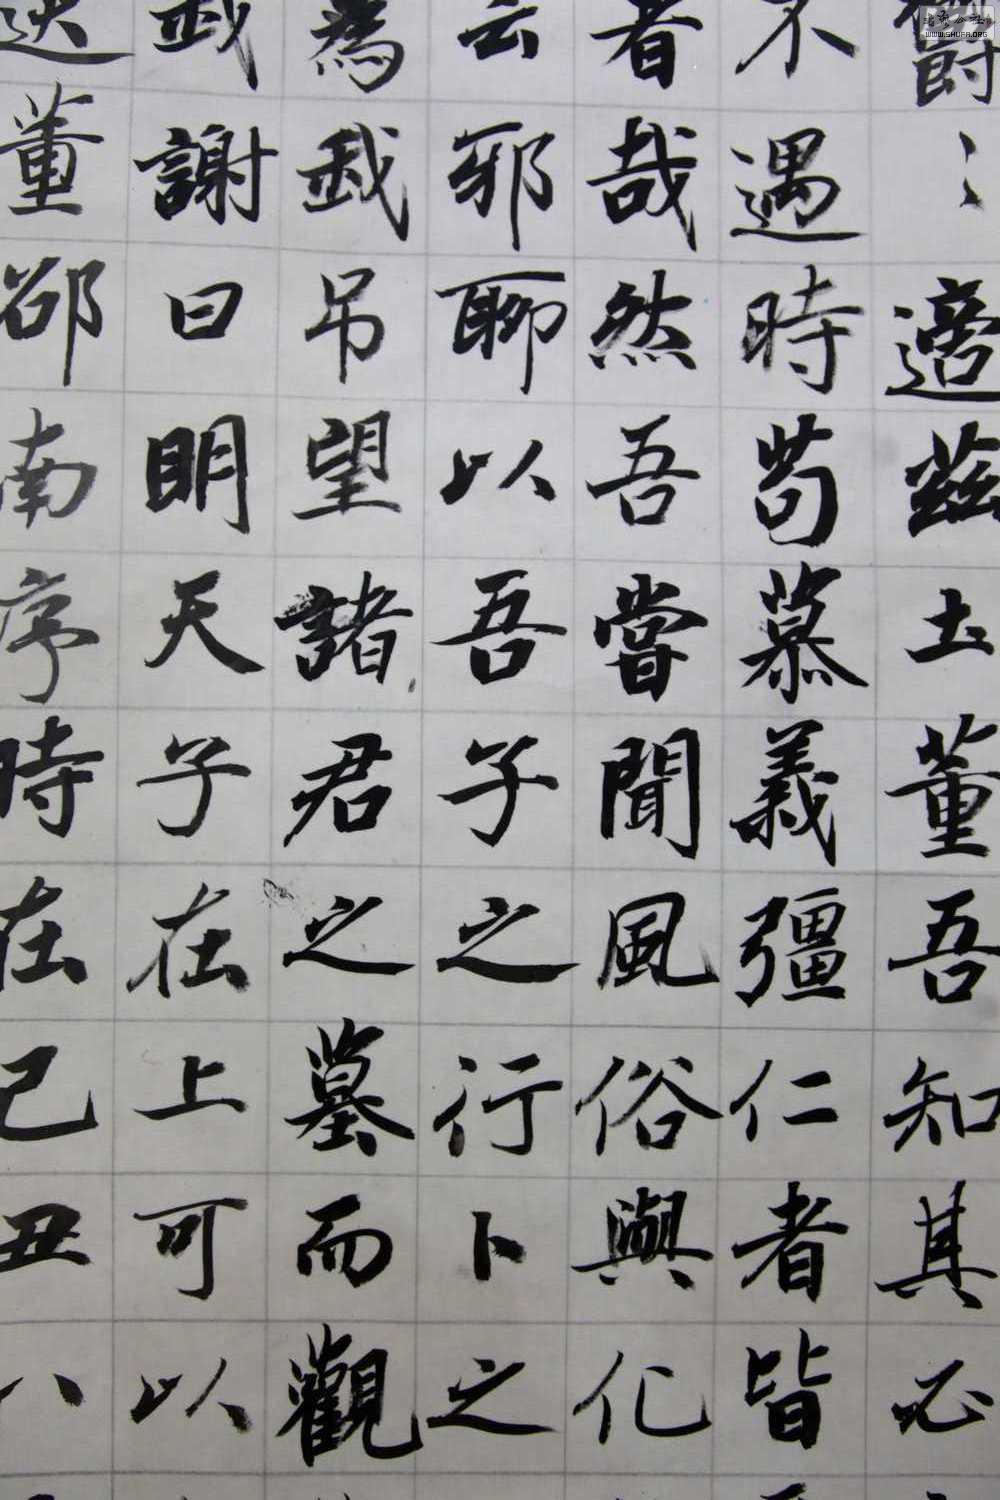 〻適茲土董吾知其必
不遇時苟慕義彊仁者皆
者哉然吾嘗聞風俗與化
云邪聊以吾子之行卜之
為我吊望諸君之墓而觀
我謝曰明天子在上可以
送董邵南序時在己丑八
WWW.SHUFA.ORG